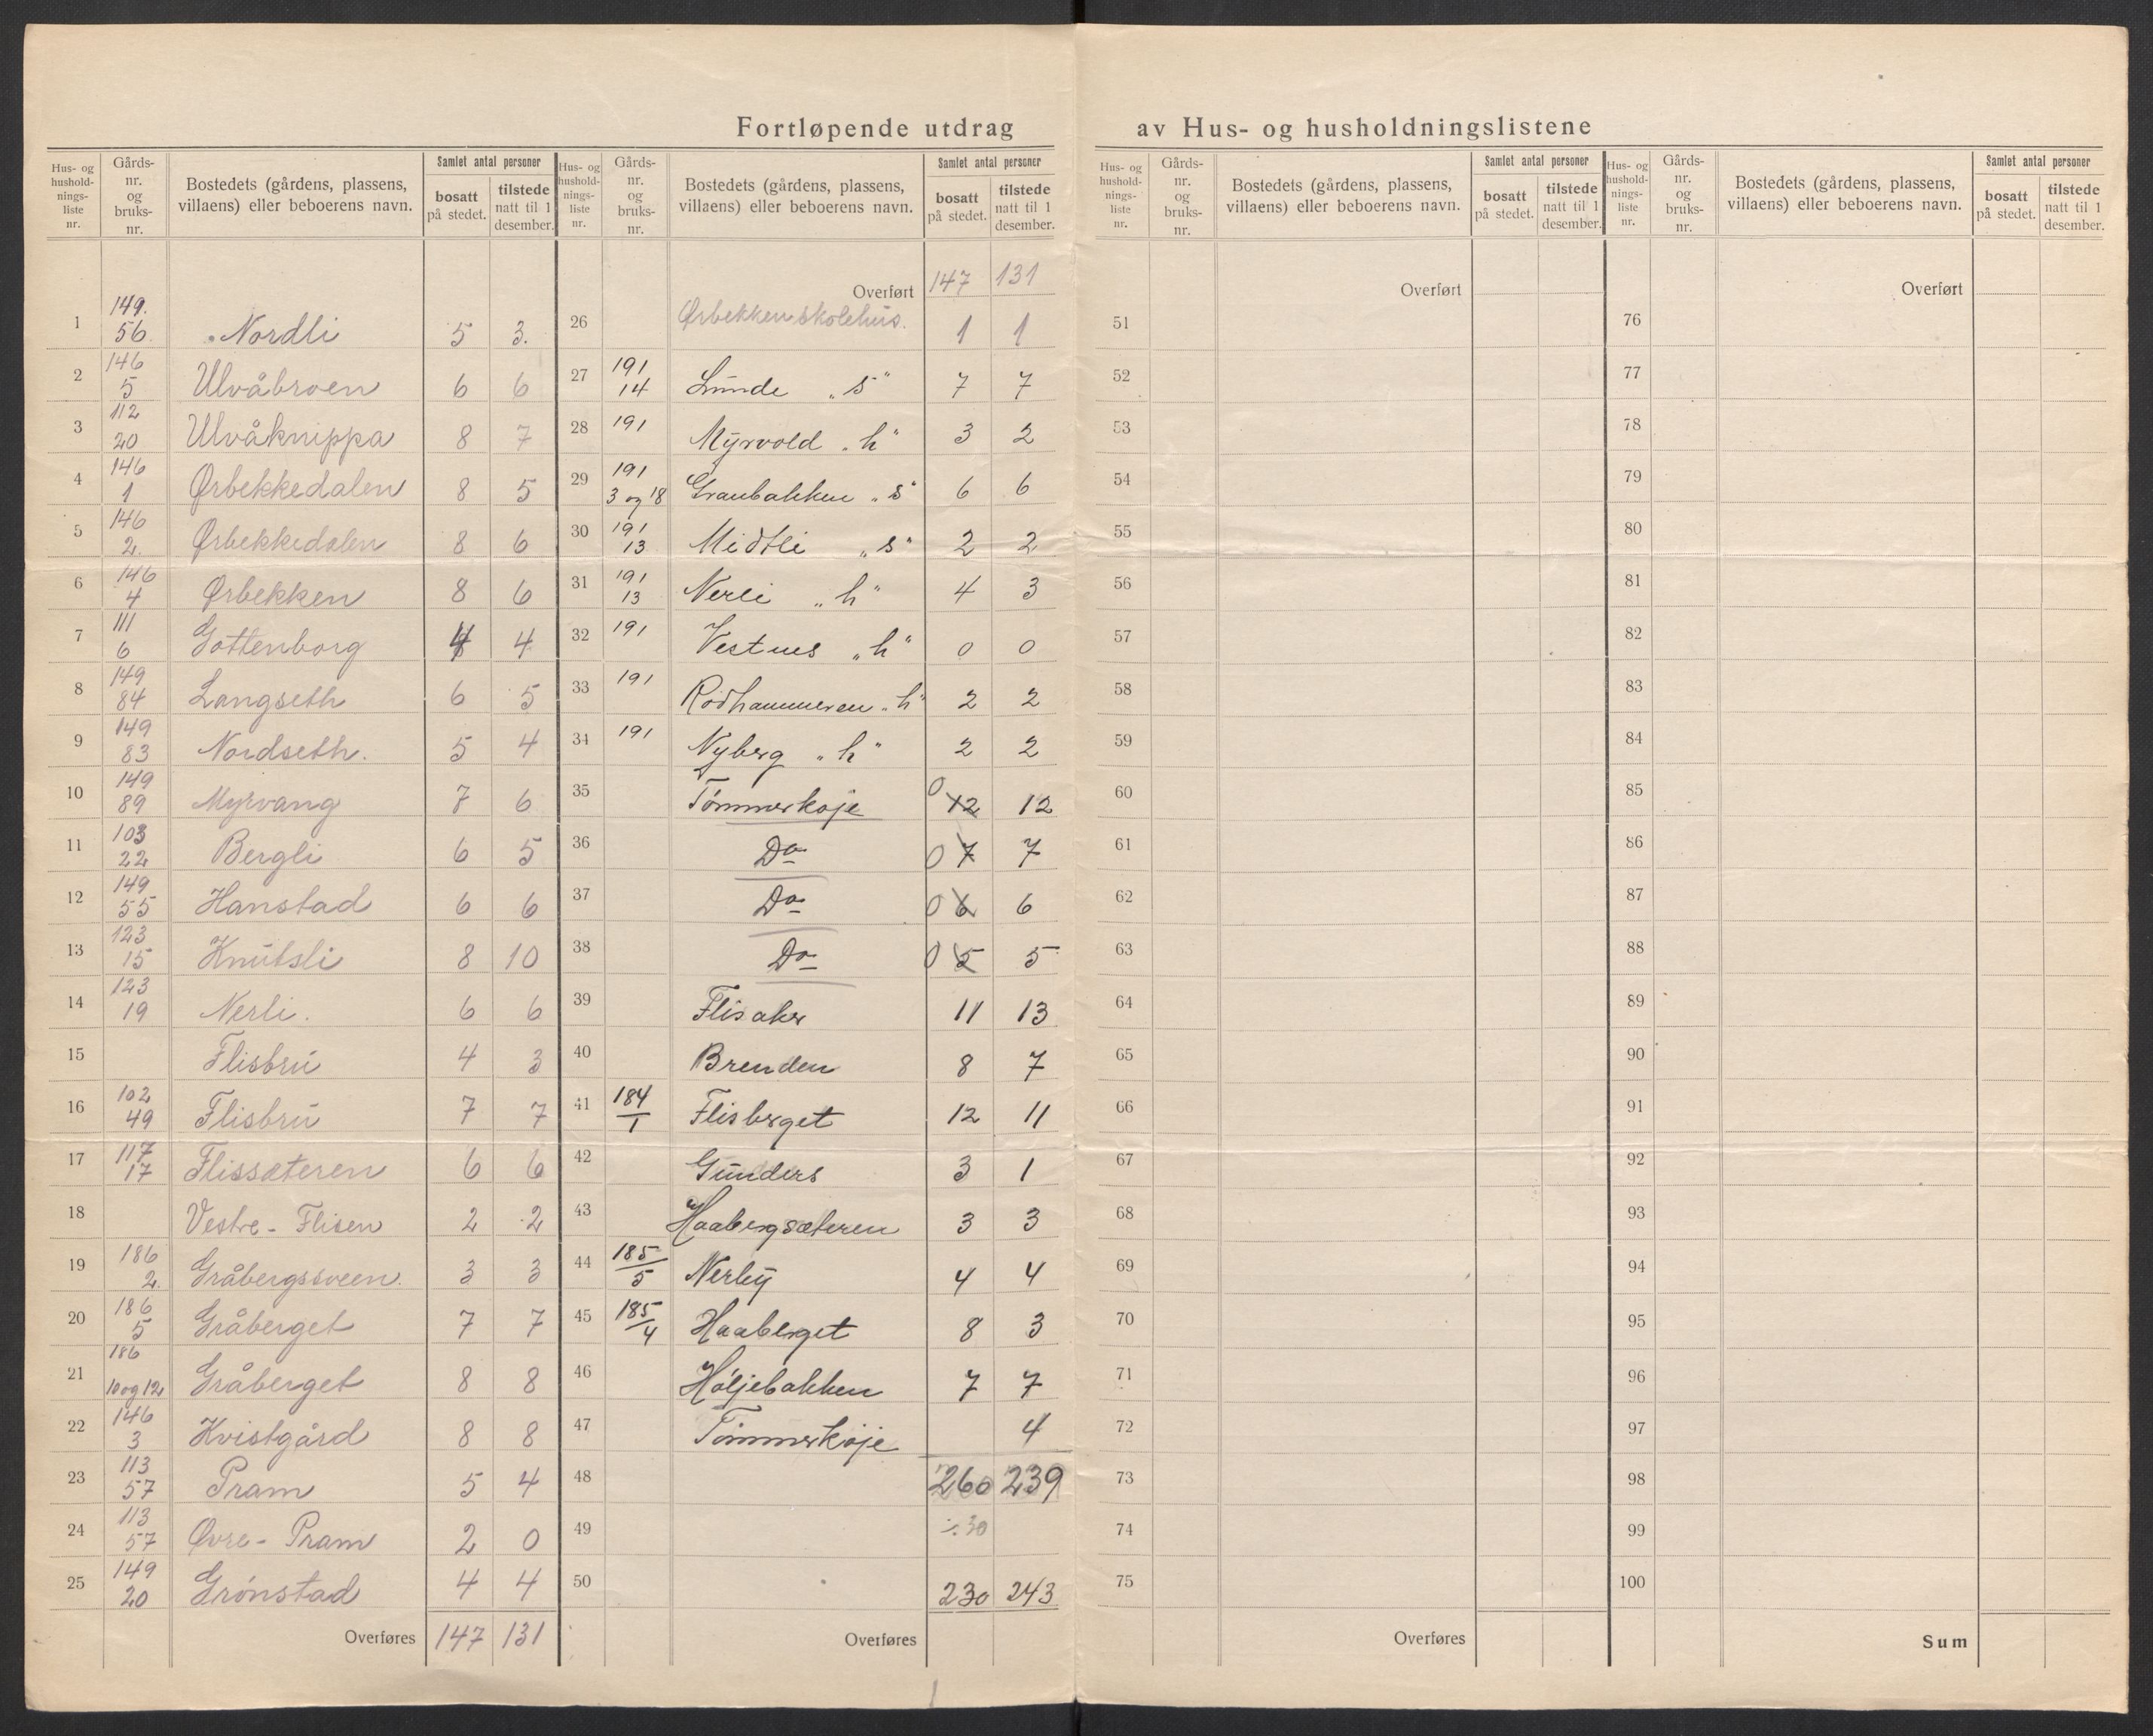 Fortløpende utdrag av Hus- og husholdningslistene
Hus- og husholdnings-liste nr. | Gårds-nr. og bruks-nr. | Bostedets (gårdens, plassens, villaens) eller beboerens navn. | Samlet antal personer | bosatt på stedet. | tilstede natt til 1 desember.
1 149. 56 Nordli 5 3.
2 146 5 Ulvåbroen 6 6
3 112 20 Ulvåknippa 8 7
4 146 1 Ørbekkedalen 8 5
5 146 2. Ørbekkedalen 8 6
6 146 4 Ørbekken 8 6
7 111 6 Gottenborg 4 4
8 149 84 Langseth 6 5
9 149 83 Nordseth. 5 4
10 149 89 Myrvang 7 6
11 103 22 Bergli 6 5
12 149 55 Hanstad 6 6
13 123 15 Knutsli 8 10
14 123 19 Nerli. 6 6
15 Flisbru 4 3
16 102 49 Flisbru 7 7
17 117 17 Flissæteren 6 6
18 Vestre - Flisen 2 2
19 186 2. Gråbergssveen. 3 3
20 186 5 Gråberget 7 7
21 186 10 og 12 Gråberget 8 8
22 146 3 Kvistgård 8 8
23 113 57 Pram 5 4
24 113 57 Øvre - Pram 2 0
25 149 20 Grønstad 4 4
Overføres 147 131
Hus- og husholdnings-liste nr. | Gårds-nr. og bruks-nr. | Bostedets (gårdens, plassens, villaens) eller beboerens navn. | Samlet antal personer | bosatt på stedet. | tilstede natt til 1 desember.
Overført 147 131
26 Ørbekken skolehus. 1 1
27 191 14 Lunde „s" 7 7
28 191 Myrvold „h" 3 2
29 191 3 og 18 Granbakken „s" 6 6
30 191 13 Midtli „s" 2 2
31 191 13 Nerli „h" 4 3
32 191 Vestnes „h" 0 0
33 191 Rødhammeren „h" 2 2
34 191 Nyberg „h" 2 2
35 Tømmerkoje 0 12 12
36 Do 0 7 7
37 Do 0 6 6
38 Do 0 5 5
39 Flisaker 11 13
40 Brenden 8 7
41 184/1 Flisberget 12 11
42 Gunders 3 1
43 Haabergsæteren 3 3
44 185/5 Nerby 4 4
45 185/4 Haaberget 8 3
46 Høljebakken 7 7
47 Tømmerkoje 4
48 260 239
49 ÷ 30
50 230 243
Overføres
Hus- og husholdnings-liste nr. | Gårds-nr. og bruks-nr. | Bostedets (gårdens, plassens, villaens) eller beboerens navn. | Samlet antal personer | bosatt på stedet. | tilstede natt til 1 desember.
Overført
51
52
53
54
55
56
57
58
59
60
61
62
63
64
65
66
67
68
69
70
71
72
73
74
75
Overføres
Hus- og husholdnings-liste nr. | Gårds-nr. og bruks-nr. | Bostedets (gårdens, plassens, villaens) eller beboerens navn. | Samlet antal personer | bosatt på stedet. | tilstede natt til 1 desember.
Overført
76
77
78
79
80
81
82
83
84
85
86
87
88
89
90
91
92
93
94
95
96
97
98
99
100
Sum